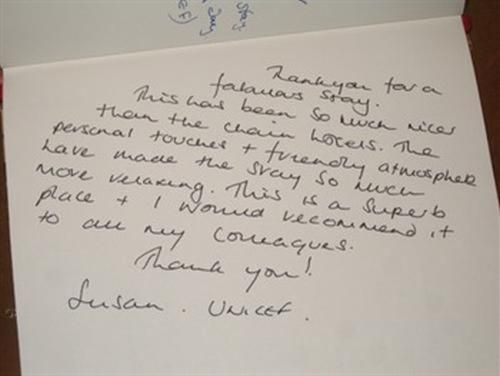 Stay.
Thankyou for a
fabulous stay.
This has been so much nicer
than the chain hotels. The
personal touches + friendly atmosphere
have made the stay so much
more relaxing. This is a superb
place + I would recommend it
to all my colleagues.
Thank you!
Susan. UNICEF.